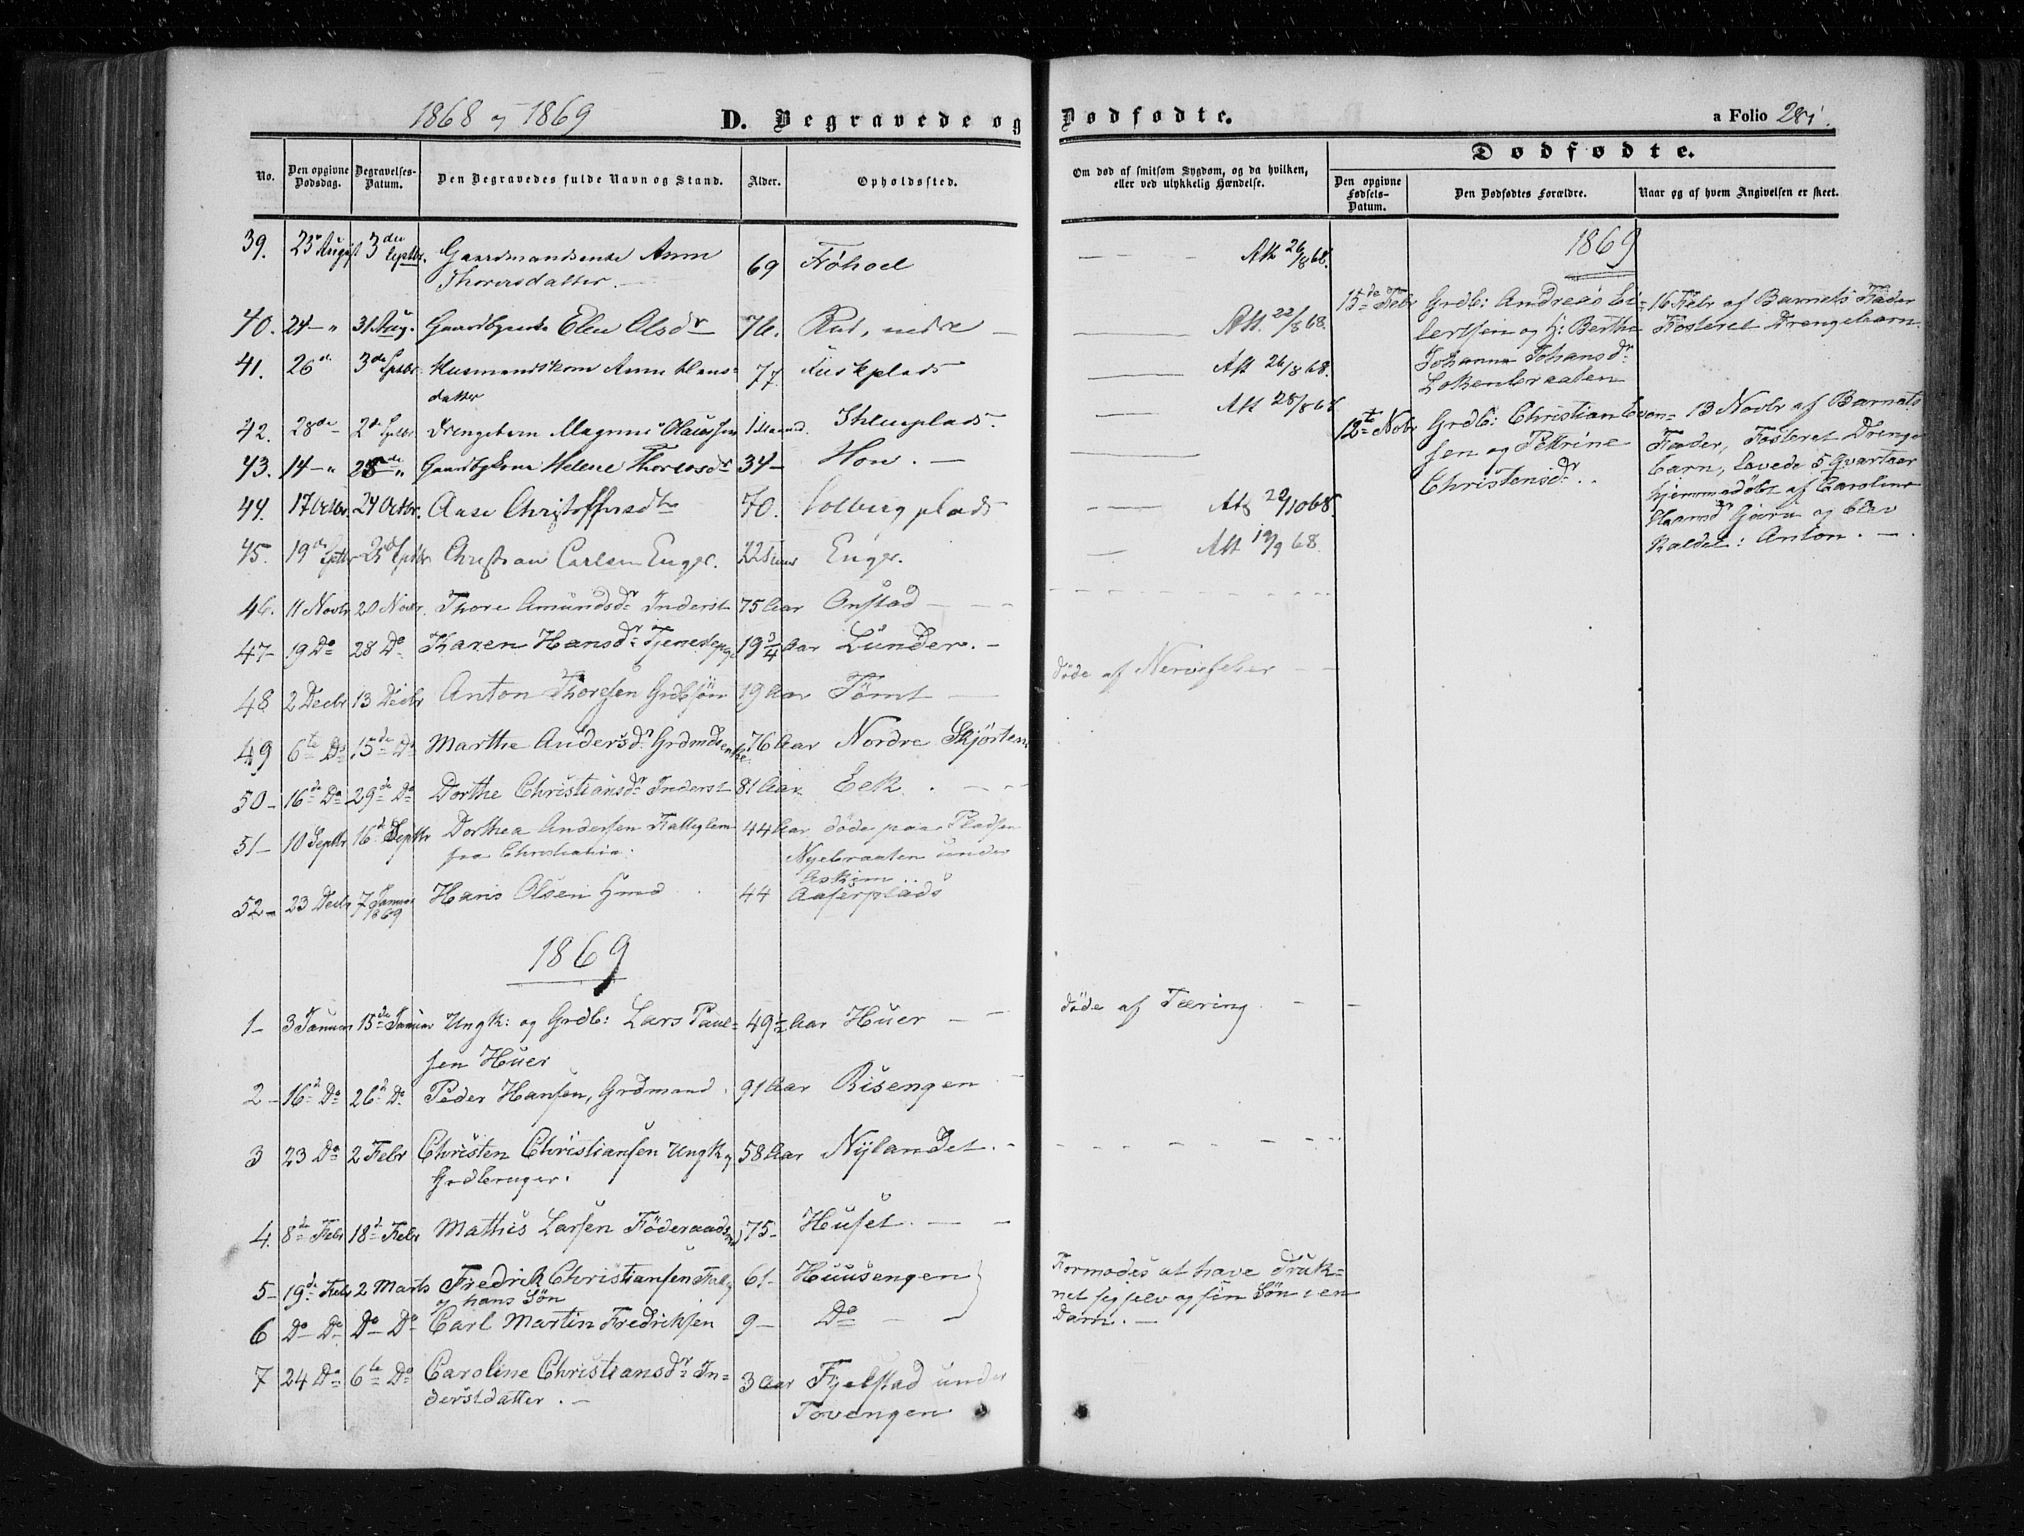 1868 og 1869 D. Begravede og Dödfödte. a Folio 281.
No. Den opgivne Dødsdag. Begravelses-Datum. Den Begravedes fulde Navn og Stand. Alder. Opholdssted. Om død af smitsom Sygdom, og da hvilken, eller ved ulykkelig Hændelse.
Dødfødte.
Den opgivne Fødsels-Datum. Den Dødfødtes Forældre. Naar og af hvem Angivelsen er skeet.
39. 23 August 3de Septbr. Gaardmandsenke Anne Thorersdatter. 69 Att 26/8 68.
40. 24 - " 31 Aug. Elen Olsdr 76. Rud, nedre - Att. 22/8 68.
41. 26de 3de Septbr Husmandskone Anne Hansdatter 77 Att 26/8 68.
42. 28de 2de Septbr Drengebarn Magnus Olaussen 1 Maaned. Att 28/8 68
43. 14 - " 25de " Helene Thoresdr 34 - Hon. -
44. 17 Octbr. 24 Octbr. Aase Christoffersdtr 70. Solberg plads Att 20/10 68.
45. 19de Septbr 25de Septbr Christian Carlsen Enger. 22 Enger. Att 19/9 68.
46. 11 Novbr 20 Novbr. Thore Amundsdr Inderst 75 Aar Onstad - - -
47 - 19 Do 28 Do Karen Hansdr Tjenestepige 19 3/4 Aar Lunder. -
døde af Nervefeber - -
48 2 Decbr 13 Decbr Anton Thoresen Grdbsøn 19 Aar Tømt -
49 6te Do 15de Do Marthe Andersdr Grdmdsenke 76 Aar Nordre Skjørten
50 - 16de Do 29de Do Dorthe Christiansdr Inderst 81 Aar Eek. - - -
51 - 10 Septbr 16d Septbr Dorthea Andersen Fattiglem 44 Aar døde paa Pladsen
fra Christiania. Nyebraaten under
Askim
52 - 23 Decbr 7 Januar 1869 Hans Olsen Hmd 44 Aaserplads
1869
1 - 3 Januar 15de Januar Ungk: og Grdb: Lars Paul= 49 1/2 Aar Huer - - døde af Tæring. - -
sen Huer
2 - 16d Do 26d Do Peder Hansen, Grdmand. 91 Aar Risengen
3 23 Do 2 Febr Christen Christiansen Ungk og 58 Aar Nylandet. -
Grdbruger.
4. 8de Febr 18d Febr Mathis Larsen Föderaadsmd 75 - Huset. - -
5 - 19de Febr 2 Marts Fredrik Christiansen 61 - Huusengen
og hans Søn
6 Do Do Do Do Carl Martin Fredriksen 9 - Do -
Formodes at have druk=
net sig selv og sin Søn i en
Dam. -
7 24 Do 6te Do Caroline Christiansdr In= 3 Aar Fjelstad under
derstdatter. - Tovengen
1869
15de Febr Grdb: Andreas Ei= 16 Febr af Barnets Fader
lertsen og H: Berthe Fosteret Drengebarn.
Johanna Johansdr
Løkenbraaten
12te Novbr Grdb: Christian Even= 13 Novbr af Barnets
sen og Pettrine Fader, Fosteret Drenge
Christensdr. barn, levede 5 Qvarteer
hjemmedøbt af Caroline
og blev
kaldet: Anton. -